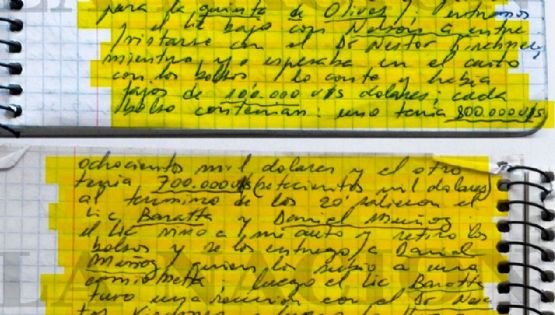 para la quinta de Olivos y Entramos
el lic bajo con Nelson a entre
vistarse con el Dr Nestor Kirchner
mientras yo esperaba en el auto
con los bolsos, lo conto y habia
fajos de 100.000 u$s dolares; cada
bolso contenian: uno tenia 800.000 u$s
ochocientos mil dolares y el otro
tenia 700.000 u$s (setecientos mil dolares)
al termino de los 20' salieron el
lic Baratta y Daniel Muñoz;
el lic vino a mi auto y retiro los
bolsos y se los entrego a Daniel
Muñoz y quien los subio a una
camioneta; luego el lic Baratta
tuvo una reunion con el Dr
LA NACION